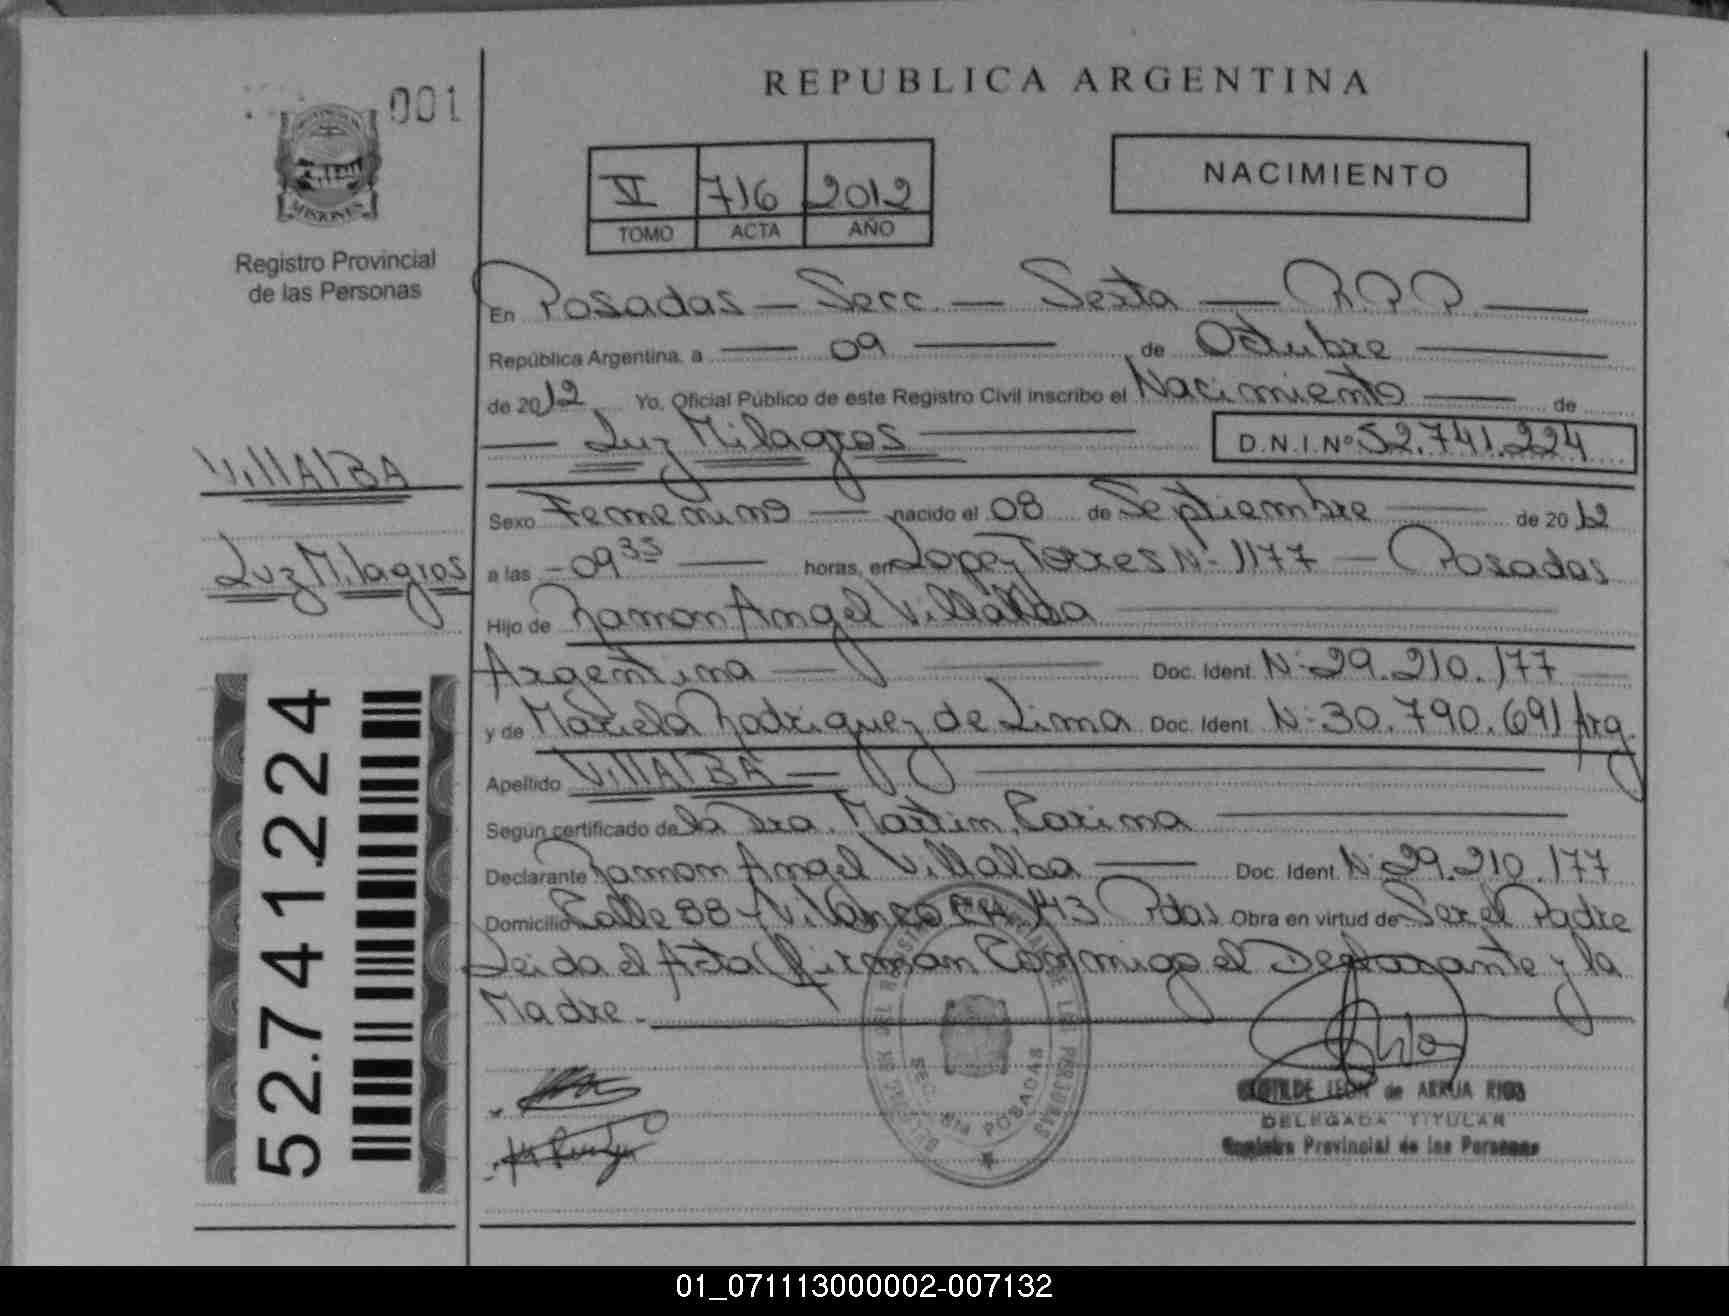 001
MISIONES
Registro Provincial
de las Personas
VIllAlBA
Luz Milagros
52.741.224
REPUBLICA ARGENTINA
VI 716 2012
TOMO ACTA AÑO
NACIMIENTO
En Posadas — Secc. — Sexta — RPP —
República Argentina, a — 09 — de Octubre —
de 2012 Yo, Oficial Público de este Registro Civil inscribo el Nacimiento — de
— Luz Milagros — D.N.I. Nº 52.741.224
Sexo Femenino — nacido el 08 de Septiembre — de 2012
a las - 09 35 — horas, en Lopez Torres Nº 1177 — Posadas
Hijo de Ramon Angel Villalba —
Argentina — Doc. Ident. Nº 29.210.177 —
y de Mariela Rodriguez de Lima Doc. Ident. Nº 30.790.691 Arg.
Apellido VIllAlBA —
Según certificado de la Dra. Martin, Carina —
Declarante Ramon Angel Villalba — Doc. Ident. Nº 29.210.177
Domicilio Calle 88 - Pdas. Obra en virtud de Ser el Padre
Leida el Acta firman Conmigo el Declarante y la
Madre.
SEC. 6ta POSADAS
LEON de ARRUA RIOS
DELEGADA TITULAR
Registro Provincial de las Personas
01_071113000002-007132